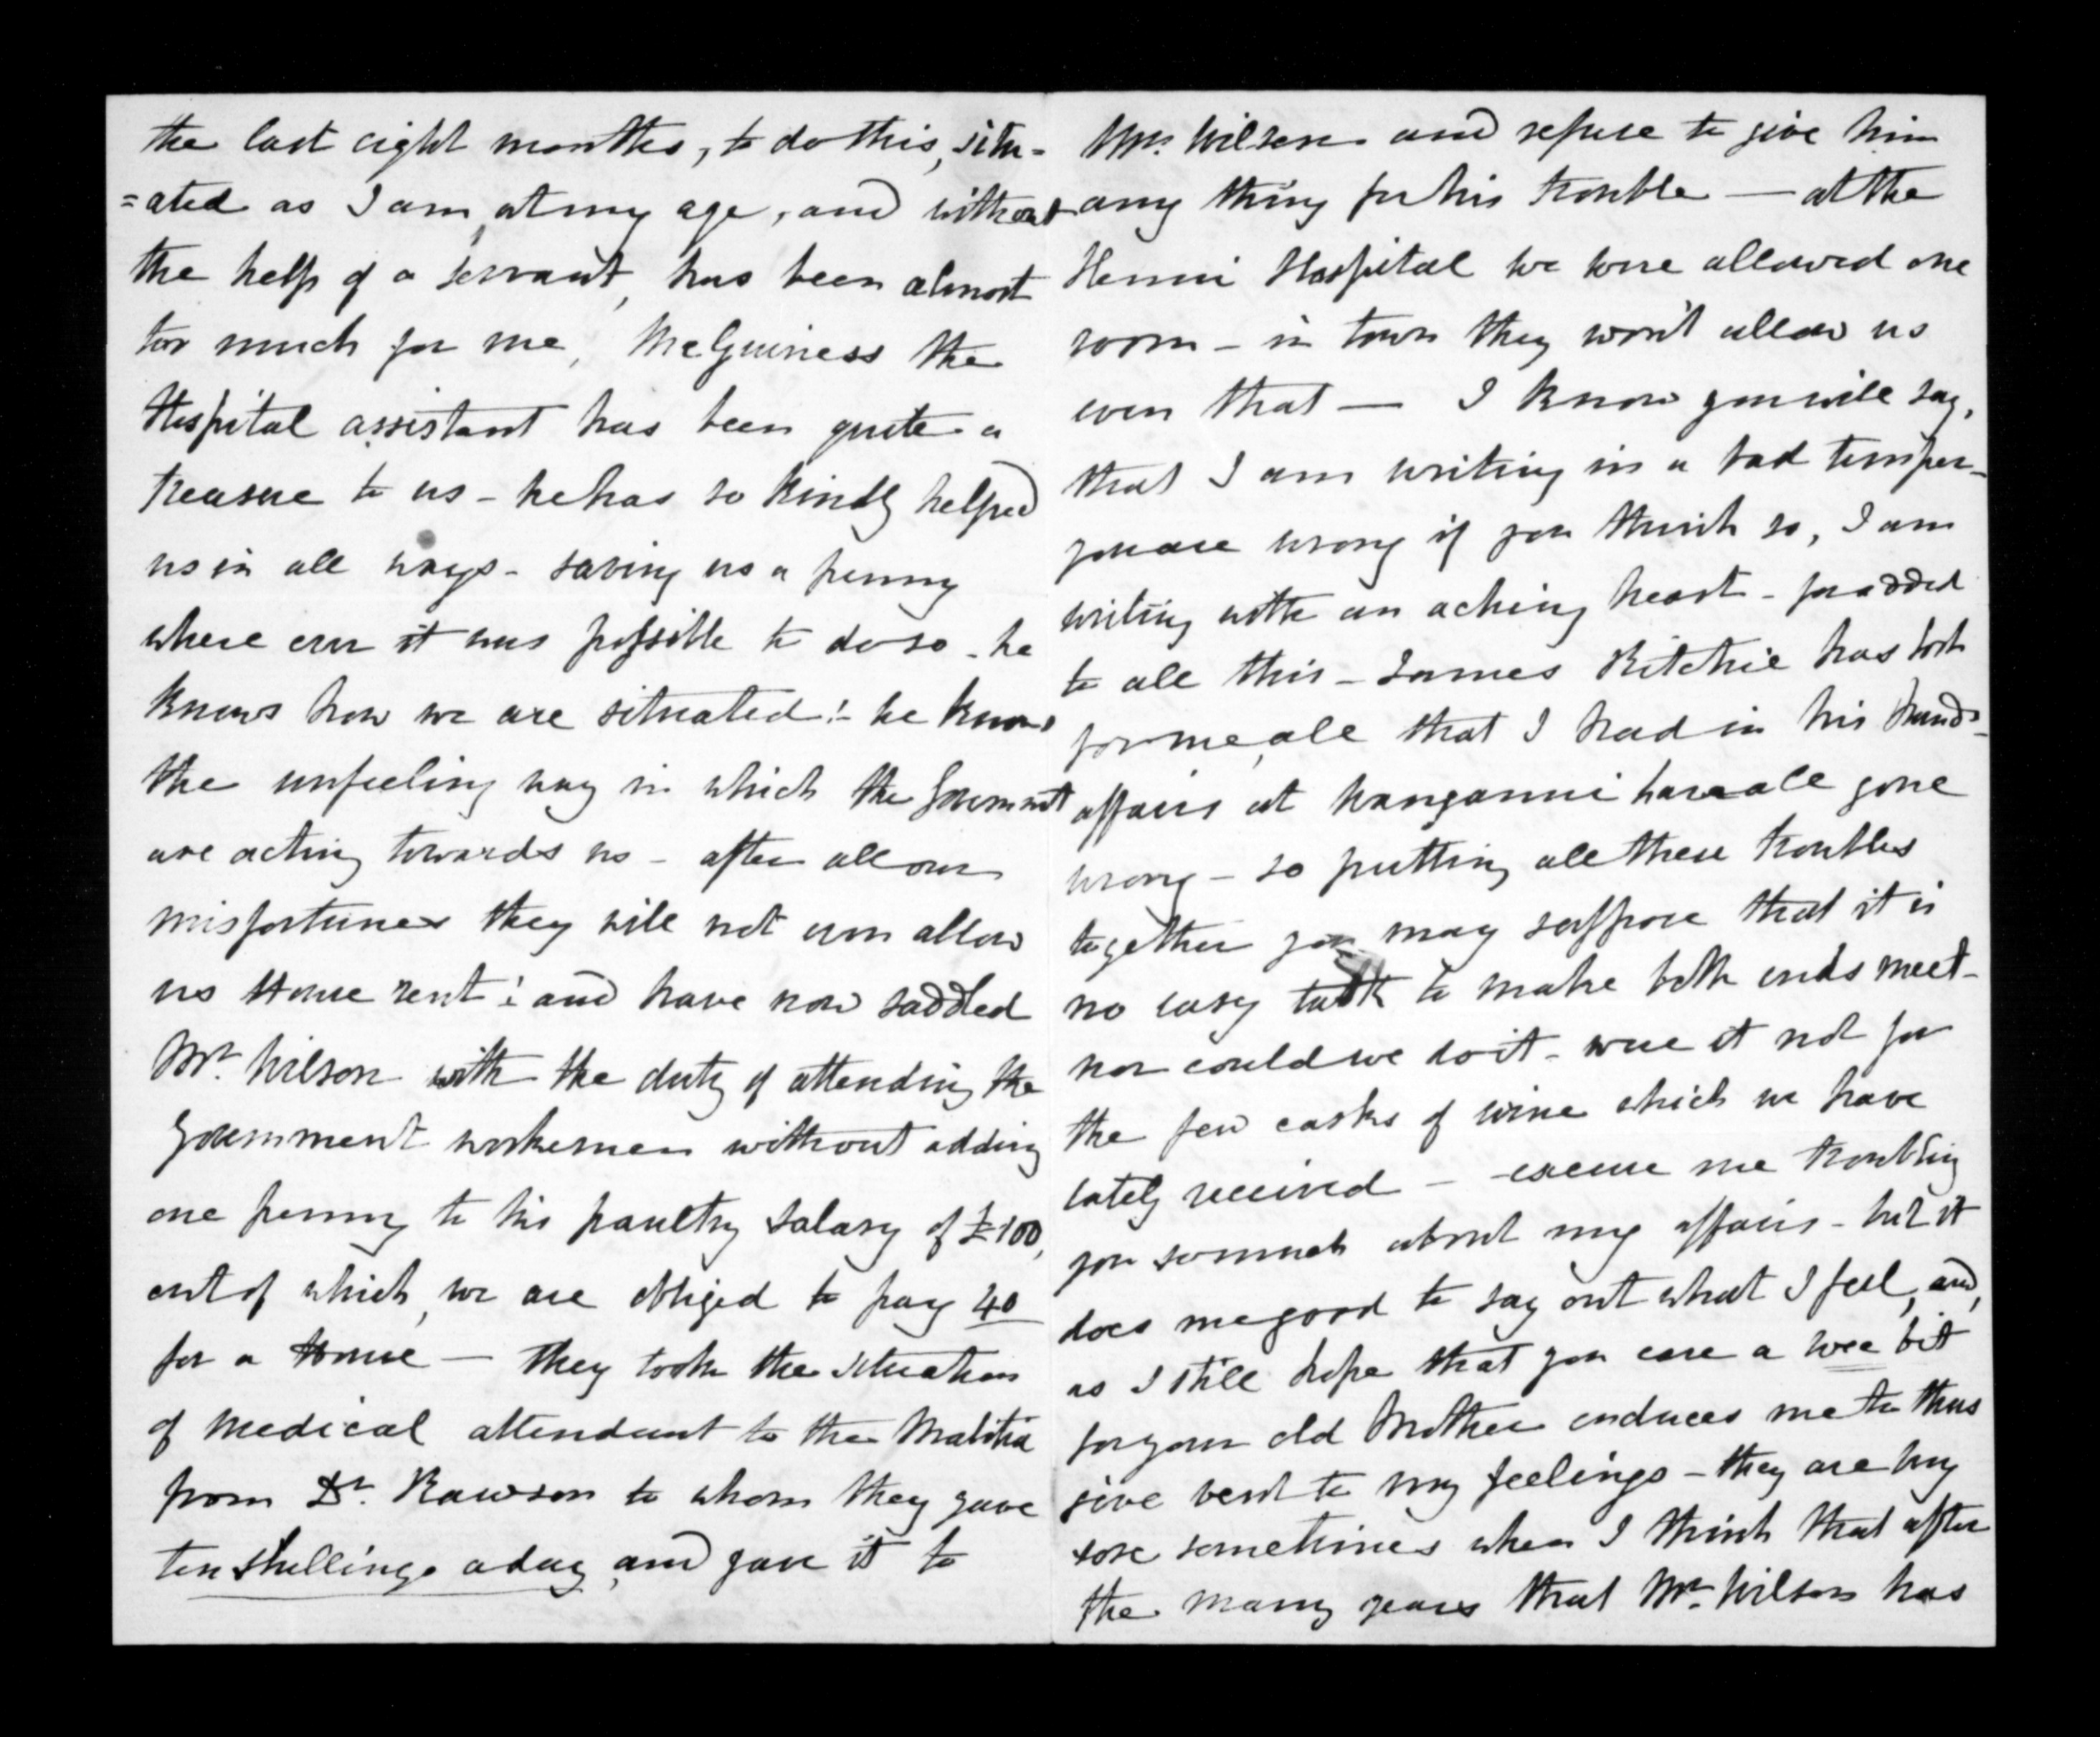 the last eight months, to do this, situ-
=ated as I am, at my age, and without
the help of a servant, has been almost
too much for me, McGuiness the
Hospital assistant has been quite a
treasure to us - he has so kindly helped
us in all ways - saving us a penny
where ever it was possible to do so - he
knows how we are situated! - he knows
the unfeeling way in which the Government
are acting towards us - after all our
misfortunes they will not even allow
us House rent! and have now saddled
Mr. Wilson with the duty of attending the
Government workemen without adding
one penny to his paultry salary of £100,
out of which, we are obliged to pay 40
for a House — they took the situation
of medical attendant to the Malitia
from Dr. Rawson to whom they gave
ten shillings a day, and gave it to
Mr. Wilson and refuse to give him
any thing for his trouble — at the
Henui Hospital we were allowed one
room - in town they won't allow us
even that — I know you will say,
that I am writing in a bad temper -
you are wrong if you think so, I am
writing with an aching heart - for added
to all this - James Ritchie has lost
for me, all that I had in his hands -
affairs at Wanganui have all gone
wrong - so putting all these troubles
together you may suppose that it is
no easy task to make both ends meet -
nor could we do it - were it not for
the few casks of wine which we have
lately received — excuse me troubling
you so much about my affairs - but it
does me good to say out what I feel, and,
as I still hope that you care a wee bit
for your old Mother enduces me to thus
give vent to my feelings - they are very
sore sometimes when I think that after
the many years that Mr. Wilson has